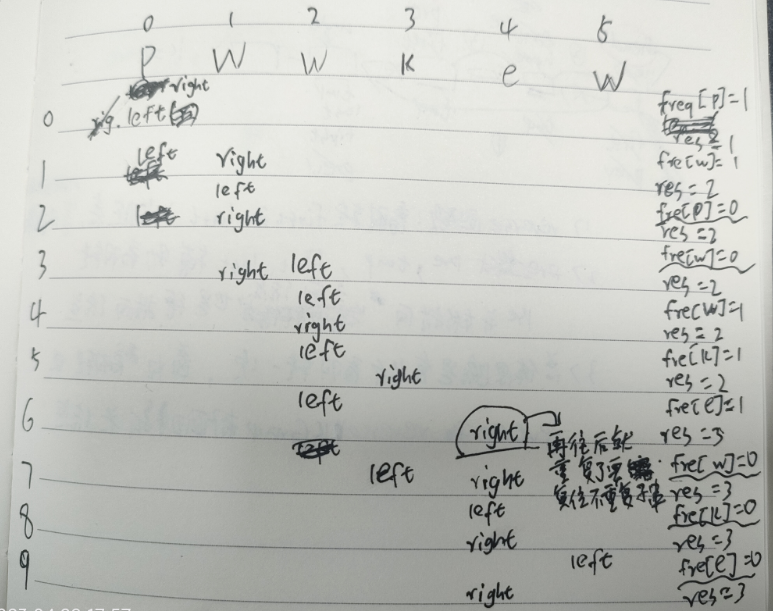 0 1 2 3 4 5
P W W K e W
right freq[P]=1
0 left
res=1
left right fre[w]=1
1
left res=2
2 right fre[P]=0
res=2
3 right left fre[w]=0
left res=2
4 right fre[W]=1
left res=2
5 right fre[K]=1
res=2
left fre[e]=1
6 right 再往后就 res=3
7 left right 重复了 fre[w]=0
left 不重复子串 res=3
8 fre[K]=0
right res=3
left fre[e]=0
9 right res=3